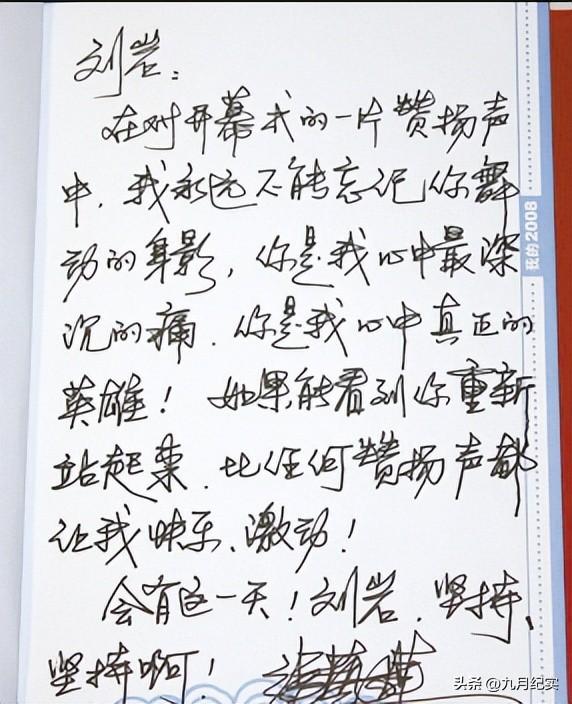 刘岩：
在对开幕式的一片赞扬声
中，我永远不能忘记你舞
动的身影，你是我心中最深
沉的痛，你是我心中真正的
英雄！如果能看到你重新
站起来，比任何赞扬声都
让我快乐、激动！
会有这一天！刘岩，坚持、
坚持啊！
我的2008
头条 @九月纪实